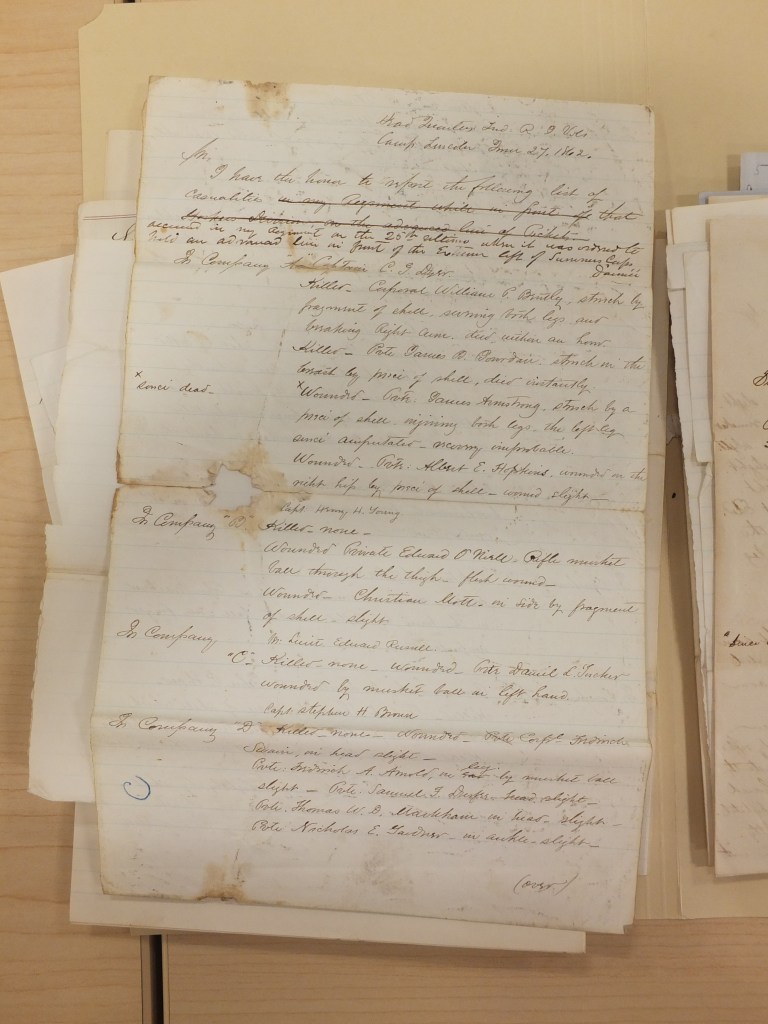 Head Quarters 2nd R. I. Vols
Camp Lincoln June 27, 1862.
Sir,
I have the honor to report the following list of
casualities in my Regiment while in front of that
on the advanced line of Pickets
occurred in my Regiment on the 25th ultimo when it was ordered to
hold an advanced line in front of the left of Sumners Corps
In Company A. Captain C. G. Dyer
Killed - Corporal William P. Bently, struck by
fragment of shell, both legs and
breaking right arm. died within an hour.
Killed - Pvte James R. struck in the
breast by piece of shell, died instantly
x since dead -
x Wounded - Pvte. James Armstrong - struck by a
piece of shell, injuring both legs. the left leg
since amputated - recovery improbable.
Wounded - Pvte. Albert E. Hopkins, wounded on the
right hip by piece of shell - wound slight -
Capt Henry H. Young
In Company "B" Killed none -
Wounded Private Edward O'Neill - Rifle musket
ball through the thigh - flesh wound -
Wounded - Christian Mott - in side by fragment
of shell - slight
Lieut Edward Russell
In Company
"C" - Killed none - Wounded - Pvte Daniel L Tucker
wounded by musket ball in left hand
Capt Stephen H. Brown
In Company D Killed - none - Wounded - Corpl Fredrick
in head slight -
Pvte. Fredrick A. Arnold, in leg by musket ball
slight - Pvte. Samuel T. head slight -
Pvte. Thomas W. D. Markham - in head - slight -
Pvte Nicholas E. Gardner - in ankle - slight -
(over)